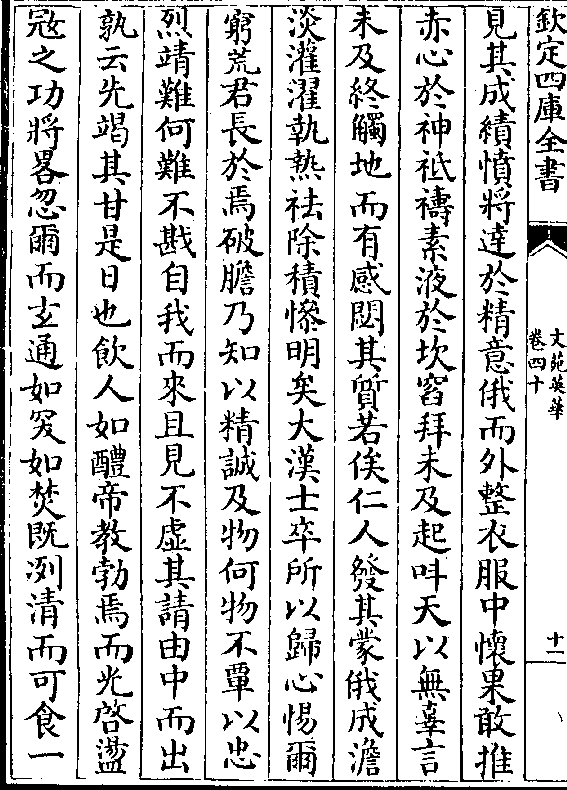 欽定四庫全書
文苑英華
卷四十
十一
見其成績憤將達於精意俄而外整衣服中懷果敢推
赤心於神祇禱素液於坎窞拜未及起呌天以無辜言
未及終觸地而有感閟其質若俟仁人發其蒙俄成澹
淡灌濯執熱祛除積慘明矣大漢士卒所以歸心惕爾
窮荒君長於焉破膽乃知以精誠及物何物不覃以忠
烈靖難何難不戡自我而來且見不虛其請由中而出
孰云先竭其甘是日也飲人如醴帝教勃焉而光啓盪
冦之功將畧忽爾而玄通如筊如焚既冽清而可食一